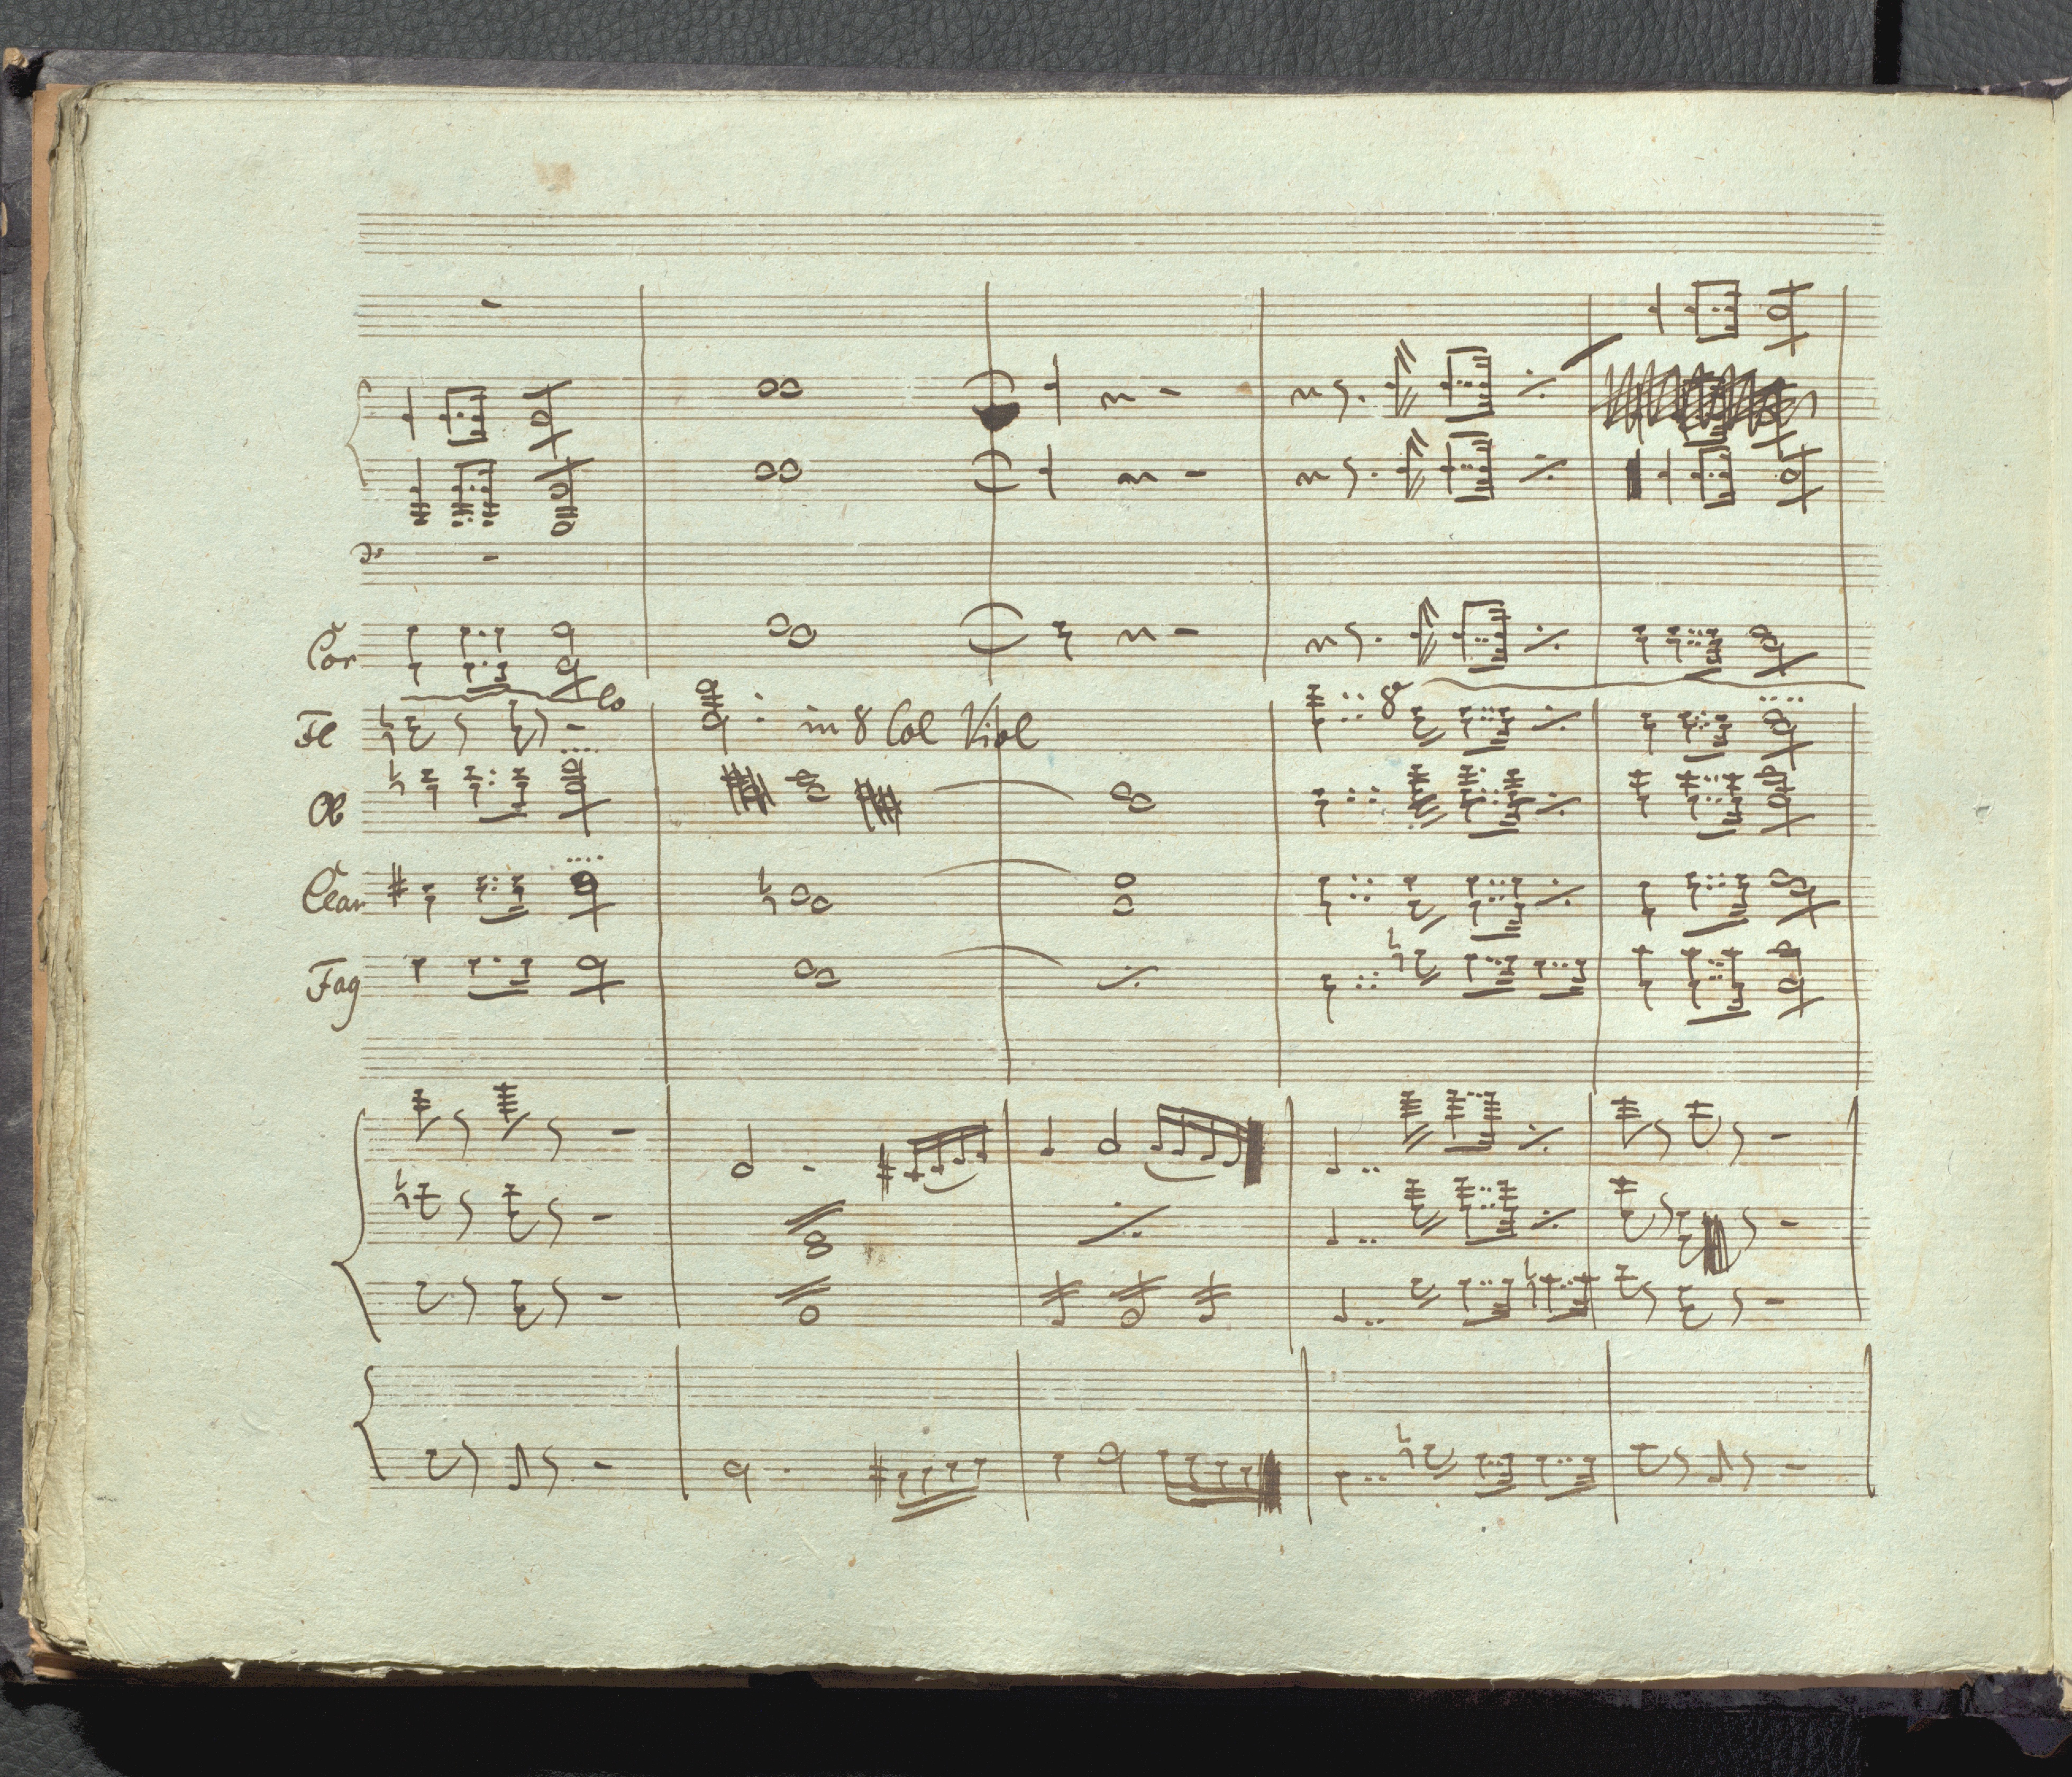 Cor
Fl
in 8 Col Viol
8
Ob
Clar
Fag